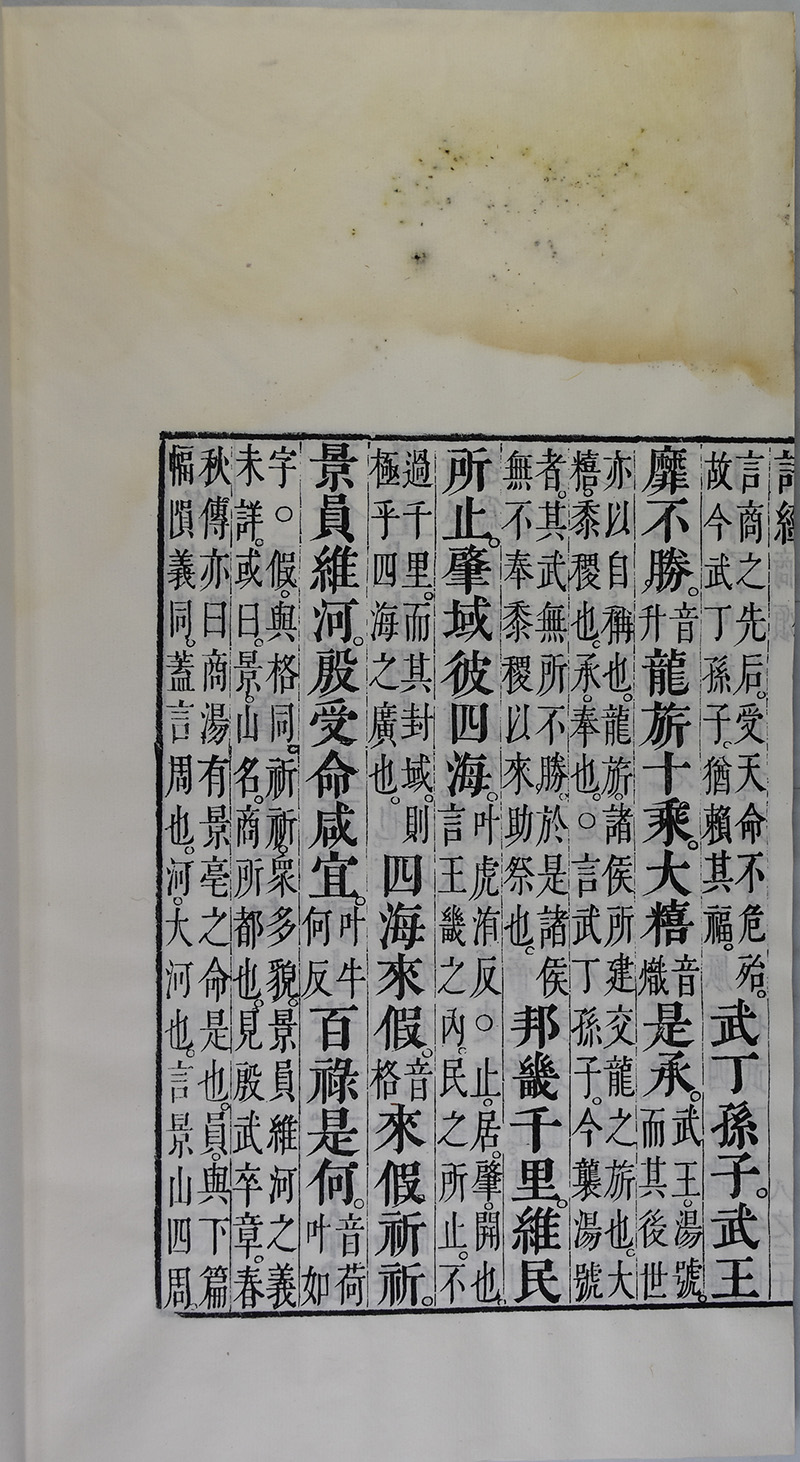 言商之先后。受天命不危殆。
故今武丁孫子。猶賴其福。
武丁孫子。武王
靡不勝。音升龍旂十乘。大糦音熾是承。武王。湯號。
而其後世
亦以自稱也。龍旂。諸侯所建交龍之旂也。大
糦。黍稷也。承。奉也。○言武丁孫子。今襲湯號
者。其武無所不勝。於是諸侯
無不奉黍稷以來助祭也。
邦畿千里。維民
所止。肇域彼四海。叶虎洧反。○止。居。肇。開也。
言王畿之內。民之所止。不
過千里。而其封域。則
極乎四海之廣也。
四海來假。音格來假祈祈。
景員維河。殷受命咸宜。叶牛何反百祿是何。音荷叶如
字。○假。與格同。祈祈。衆多貌。景員維河之義
未詳。或曰。景。山名。商所都也。見殷武卒章。春
秋傳亦曰商湯有景亳之命是也。員。與下篇
幅隕義同。蓋言周也。河。大河也。言景山四周